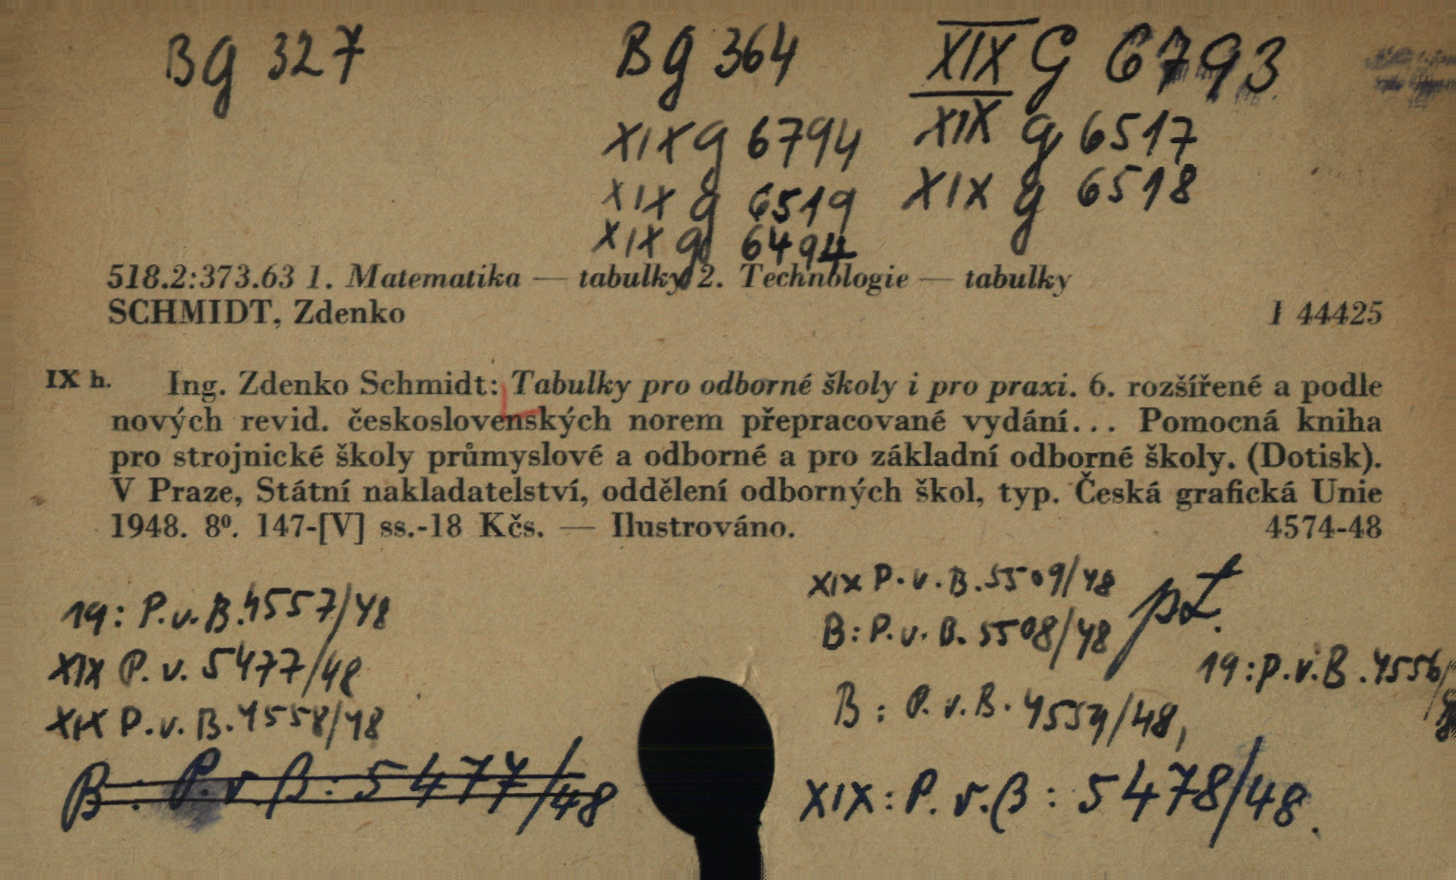 Bg 327 Bg 364 XIX G 6793
XIX g 6794 XIX g 6517
XIX g 6519 XIX g 6518
XIX g 6494
518.2:373.63 1. Matematika — tabulky 2. Technologie — tabulky
SCHMIDT, Zdenko I 44425
IX h. Ing. Zdenko Schmidt: Tabulky pro odborné školy i pro praxi. 6. rozšířené a podle
nových revid. československých norem přepracované vydání... Pomocná kniha
pro strojnické školy průmyslové a odborné a pro základní odborné školy. (Dotisk).
V Praze, Státní nakladatelství, oddělení odborných škol, typ. Česká grafická Unie
1948. 8⁰. 147-[V] ss.-18 Kčs. — Ilustrováno. 4574-48
XIX P.v.B. 5509/48
19: P.v.B. 4557/48
B: P.v.B. 5508/48
XIX P.v. 5477/48
19: P.v.B. 4556/
XIX P.v.B. 4558/48
B: P.v.B. 4559/48,
B: P.v.B: 5477/48
XIX: P.v.B: 5478/48.